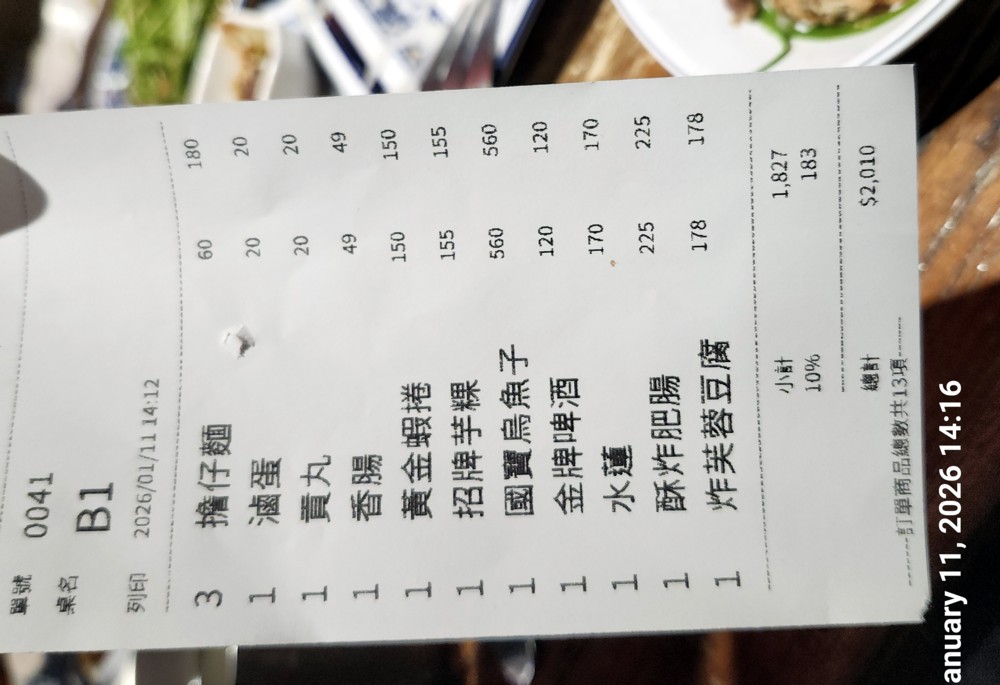 單號 0041
桌名 B1
列印 2026/01/11 14:12
3 擔仔麵 60 180
1 滷蛋 20 20
1 貢丸 20 20
1 香腸 49 49
1 黃金蝦捲 150 150
1 招牌芋粿 155 155
1 國寶烏魚子 560 560
1 金牌啤酒 120 120
1 水蓮 170 170
1 酥炸肥腸 225 225
1 炸芙蓉豆腐 178 178
小計 1,827
10% 183
總計 $2,010
訂單商品總數共13項
anuary 11, 2026 14:16